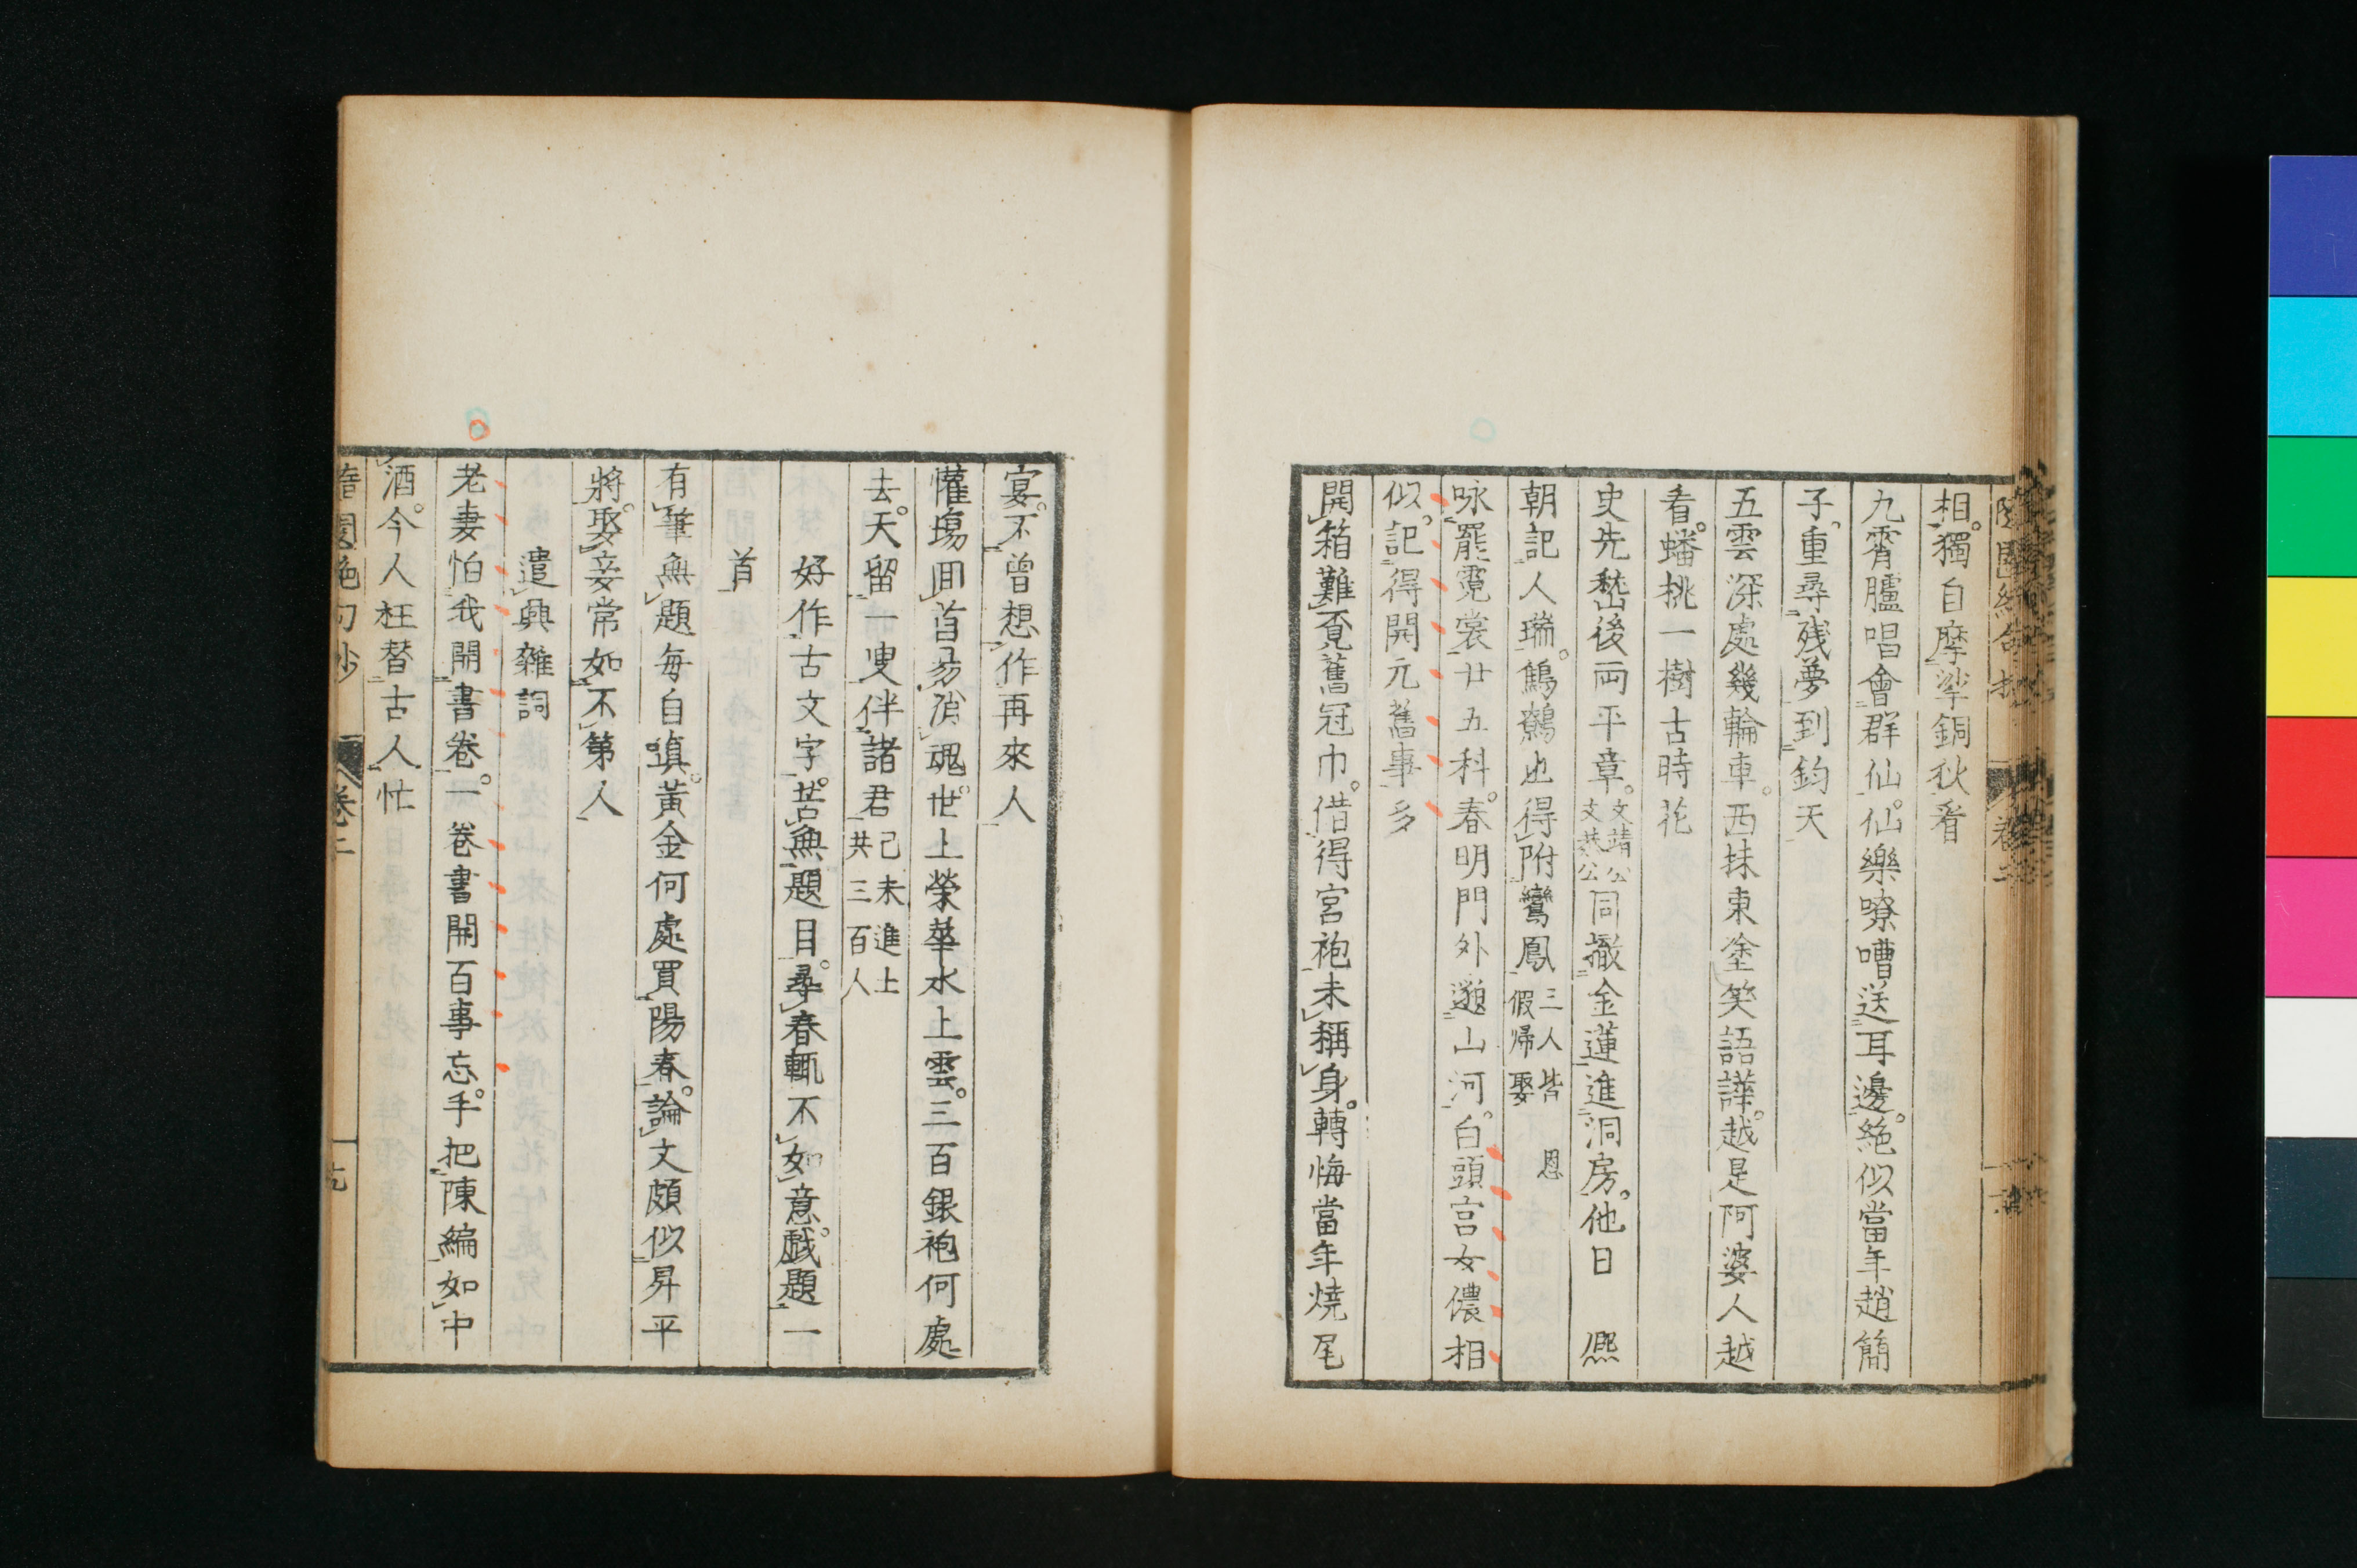 隨園絕句抄　卷二
相。獨自摩挲銅狄看
九霄臚唱會群仙。仙樂嘹嘈送耳邊。絶似當年趙簡
子。重尋残夢到鈞天
五雲深處幾輪車。西抹東塗笑語譁。越是阿婆人越
看。蟠挑一樹古時花
史先嵇後両平章。文靖公文恭公同撤金蓮進洞房。他日　熈
朝記人瑞。鷦鷯也得附鸞鳳三人皆　恩假帰娶
咏罷霓裳廿五科。春明門外邈山河。白頭宮女儂相
似。記得開元舊事多
開箱難覔舊冠巾。借得宮袍未稱身。轉悔當年燒尾
宴。不曾想作再來人
懽塲囬首易消魂。世上榮華水上雲。三百銀袍何處
去。天留一叟伴諸君己未進士共三百人
好作古文字。苦無題目。尋春輒不如意。戯題一
首
有筆無題每自嗔。黃金何處買陽春。論文頗似昇平
將。娶妾常如不第人
遣興雜詞
老妻怕我開書卷。一卷書開百事忘。手把陳編如中
酒。今人枉替古人忙
隨園絕句抄　卷二